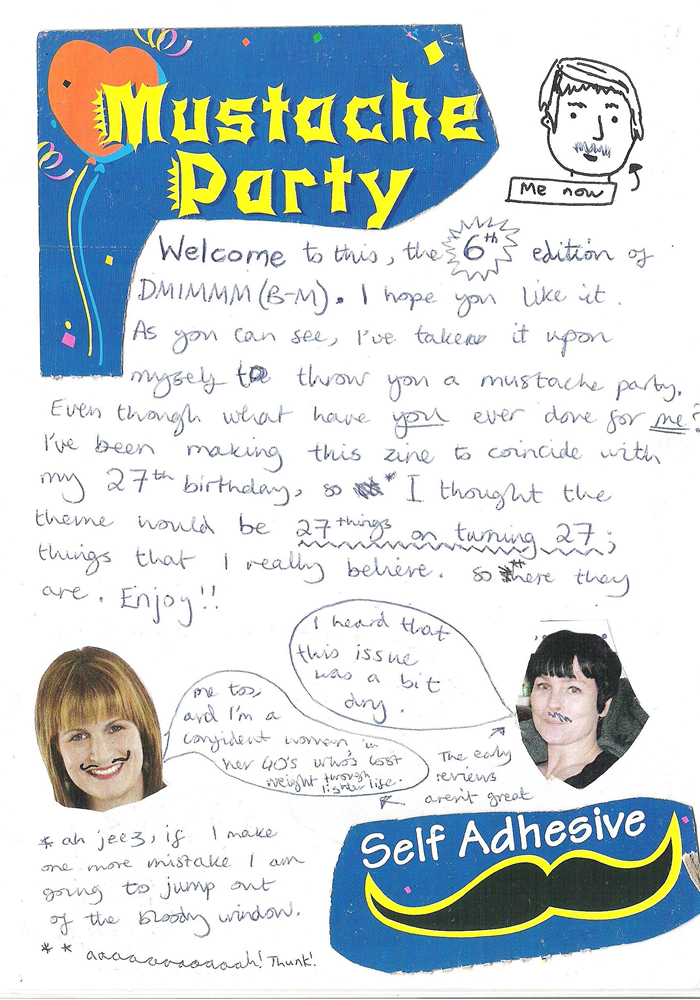 Mustache
Party
Me now
Welcome to this, the 6th edition of
DMIMMM (B-M). I hope you like it.
As you can see, I've taken it upon
myself to throw you a mustache party.
Even though what have you ever done for me?
I've been making this zine to coincide with
my 27th birthday, so * I thought the
theme would be 27 things on turning 27;
things that I really believe. so **here they
are. Enjoy!!
I heard that
this issue
was a bit
dry.
me too,
and I'm a
confident woman, in
her 40's who's lost
weight through
lighter life.
The early
reviews
aren't great
* ah jeez, if I make
one more mistake I am
going to jump out
of the bloody window.
** aaaaaaaaaaaah! Thunk!
Self Adhesive